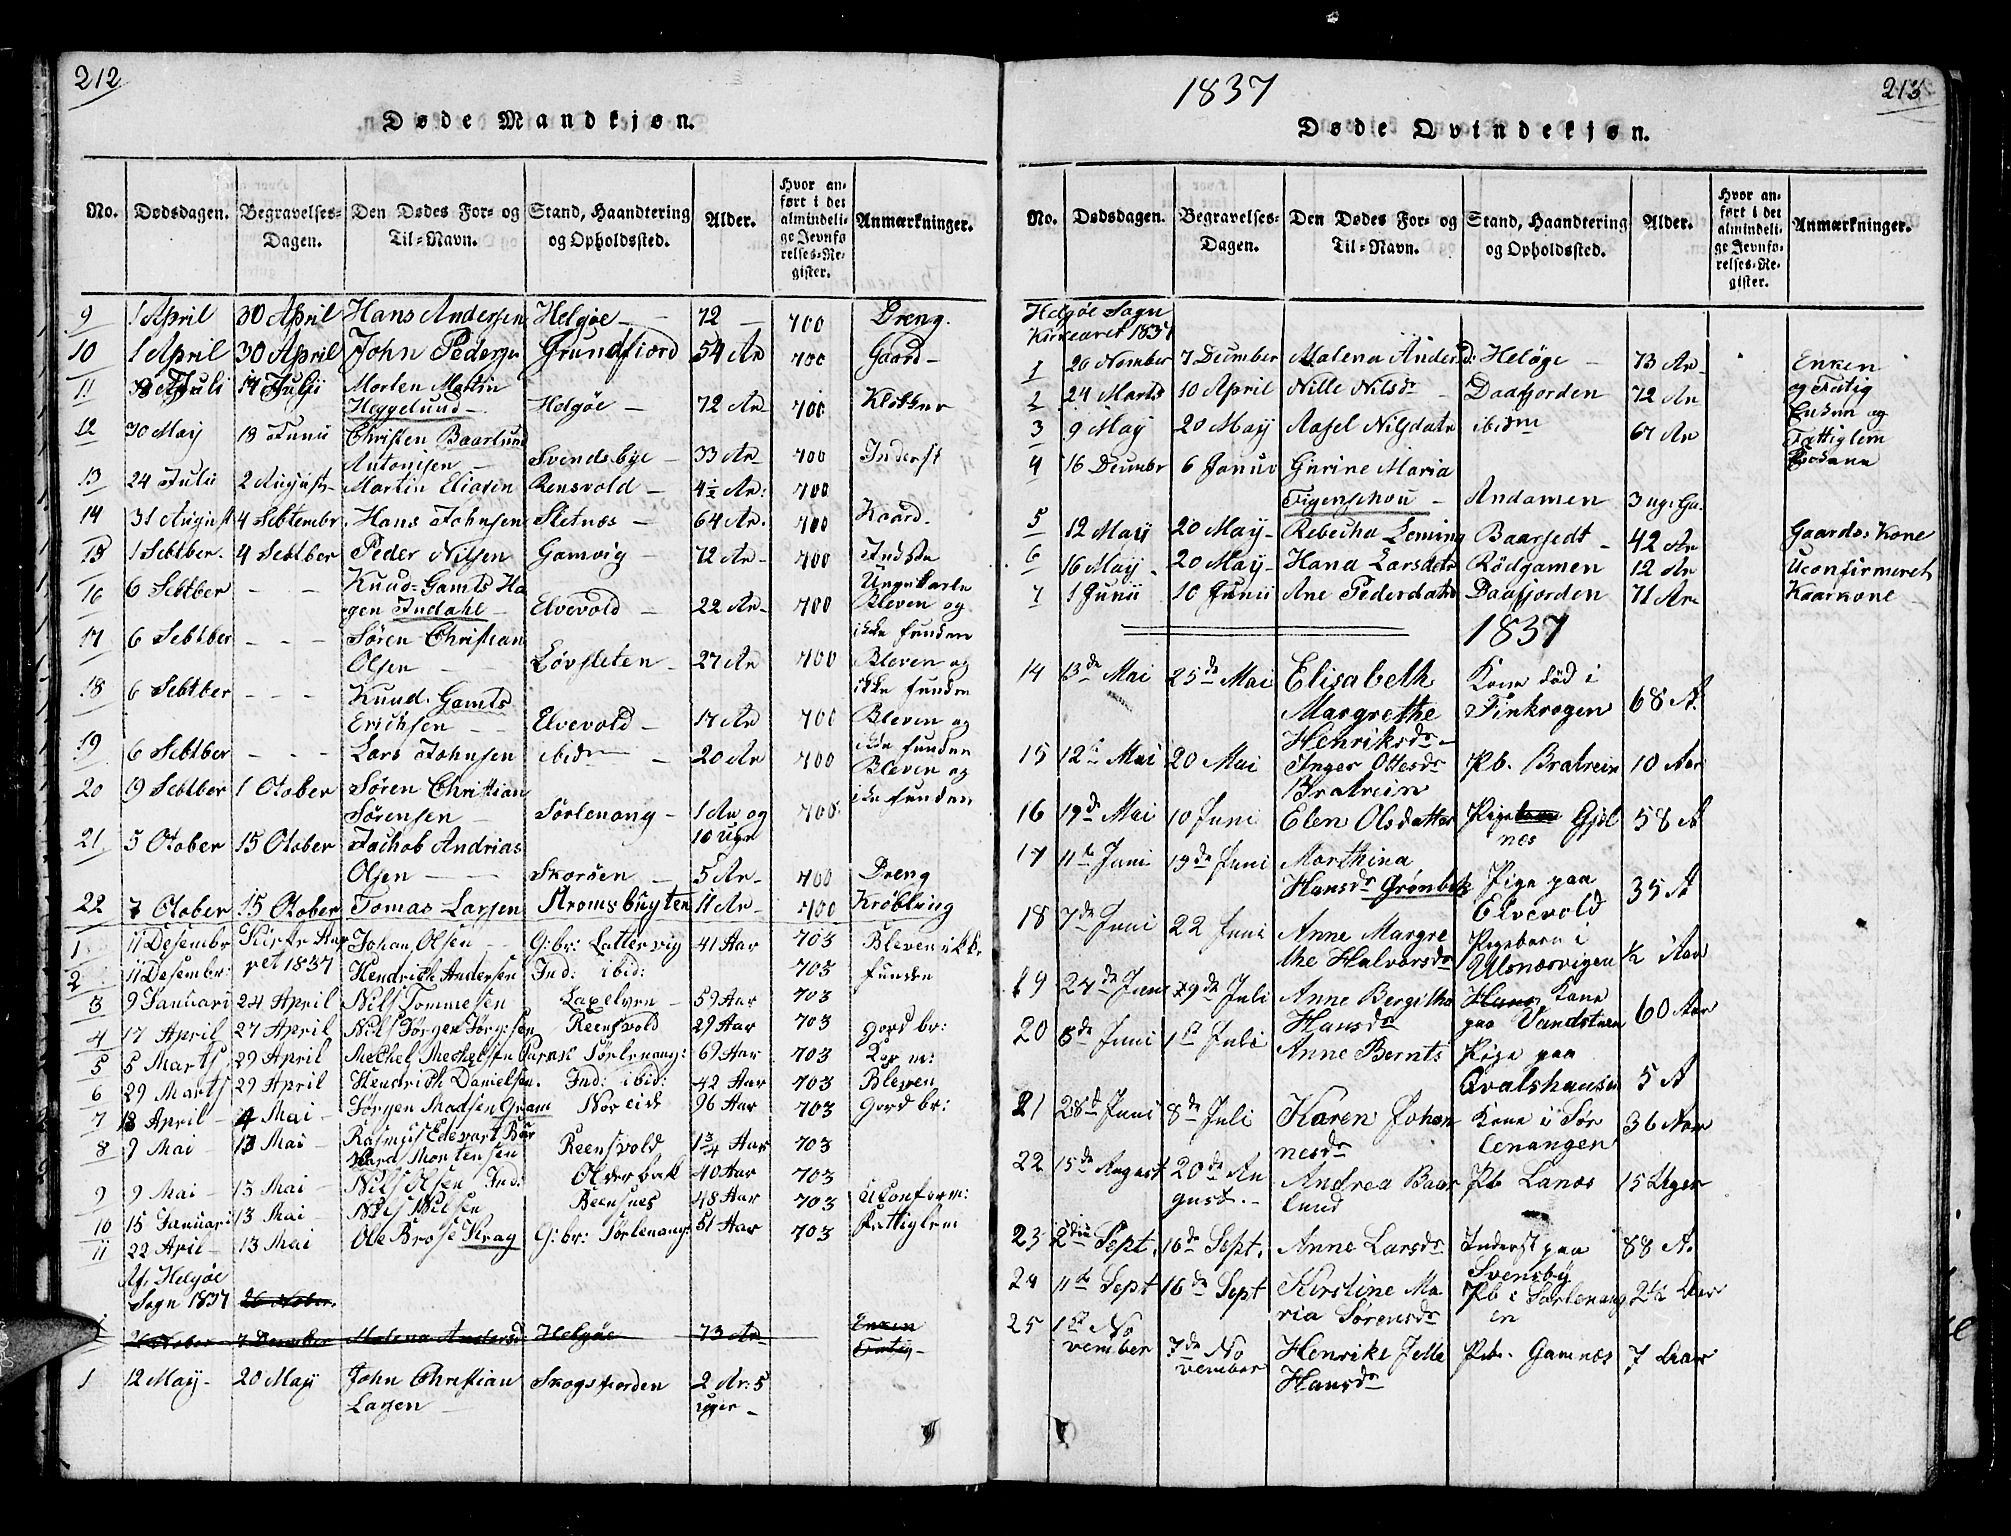 212
Døde Mandkjøn.
No. Dødsdagen. Begravelses-Dagen. Den Dødes For- og Til-Navn. Stand, Haandtering og Opholdssted. Alder. Hvor anført i det almindelige Jevnførelses-Register. Anmærkninger.
9 1 April 30 April Hans Andersen Helgøe 72 700 Dreng.
10 1 April 30 April John Pedersen Grundfiord 54 Ar 700 Gaard
11 Juli 17 Julii Morten Martin
Heggelund Helgøe 72 Ar 700 Klokker
12 30 May 18 Junii Christen Baarlund
Antonisen Svendsbye 33 Ar 700 Inderst
13 24 Julii 2 August Martin Eliasen Rensvold 4½ Ar: 700
14 31 August 4 Septembr Hans Johnsen Sletnæs 64 Ar. 700 Kaard.
15 1 Sebtber. 4 Sebtber Peder Nilsen Gamvig 72 Ar 700
16 6 Sebtber - - Knud Gamts Ha
gen Indahl Elvevold 22 Ar 700 Ungekarle Bleven og ikke funden
17 6 Sebtber - - - Søren Christian
Olsen Løvsleten 27 Ar 700 Bleven og ikke funden
18 6 Sebtber - - - Knud Gamts
Erichsen Elvevold 17 Ar 700 Bleven og ikke funden
19 6 Sebtber - - - Lars Johnsen ibidm 20 Ar 700 Bleven og ikke funden
20 19 Sebtber 1 Otober Søren Christian
Sørensen Sørlenang 1 Ar og 10 Uger 700
21 5 Otober 15 Otober Jachob Andrias
Olsen Skorøen 5 Ar 700 Dreng
22 7 Otober 15 Otober Tomas Larsen Stromsbugten 11 Ar 700 Krøbling
1 11 Desembr Kirke Aar Johan Olsen G: br: Lattervig 41 Aar 703 Bleven ikke
2 11 Desembr: ret 1837 Hendrich Andersen Ind: ibid: 703 funden
3 9 Januari 24 April Nils Tommesen Laxelven 59 Aar 703
4 17 April 27 April Nils Jørgen Jørg:sen Reensvold 29 Aar 703 gord br:
5 5 Marts 29 April Mechel Mechelsen Sørlenang: 69 Aar 703
6 29 Marts 29 April Hendrich Danielsen. Ind: ibid: 42 Aar 703 Bleven
7 18 April 4 Mai Jørgen Madsen Gram Noreide 96 Aar 703 Gord br:
8 9 Mai 13 Mai Rasmus Edevart Bar
Mortensen Reensvold 1¾ Aar 703
9 9 Mai 13 Mai Nils Olsen Ind: Olderbak 40 Aar 703
10 15 Januari 13 Mai Nils Nilsen Reensnes 48 Aar 703 Uconform:
11 22 April 13 Mai Ole Brose Krag G: br: Sørlenang: 51 Aar 703 Fattiglem
Af Helgøe
Sogn 1837 26 Nober.
26 Nober 7 Decembr Malena Andersd Helgøe 73 Ar Enken
Fattig
1 12 May 20 Maji John Christian Skogsfiorden 2 Ar: 5
Larsen uger
1837
213
Døde Qvindekjøn.
No. Dødsdagen. Begravelses-Dagen. Den Dødes For- og Til-Navn. Stand, Haandtering og Opholdssted. Alder. Hvor anført i det almindelige Jevnførelses-Register. Anmærkninger.
Helgøe Sogn
Kirkearet 1837
1 26 Novmber 7 Decmber Malena Andersd: Heløge 73 Ar Enken
2 24 Marts 10 April Nille Nilsdr Daafjorden 72 Ar og Fatig
3 9 May 20 May Aasel Nilsdatr ibidm 67 Ar Enken og Fattiglem
4 16 Decmbr 6 Januar Gurine Maria
Figenschou Andamen 3 uger Ga.
5 12 Maij 20 May Rebecha Leming Baarsedt 42 Ar Gaards: Kone
6 16 Maij 20 May Hana Larsdatr Rödgamen 12 Ar Uconfirmeret
7 1 Junii 10 Junii Ane Pedersdatr Daafjorden 71 Are Kaarkone
1837
14 13de Mai 25de Mai Elisabeth Kone død i
Margrethe Finkrogen 68 A.
Henriksdr
15 12te Mai 20 Mai Inger Ottesdr Pb. Bratrein 10 Aar
Bratrein
16 19de Mai 10 Juni Elen Olsdatter Pige Gjøl
nes 58 A
17 11te Juni 19de Juni Marthina Pige paa
Hansdr Grønbek Elvevold 35 A
18 7de Juni 22 Juni Anne Margre Pigebarn i
the Halvorsdr Ulsnæsvigen ½ Aar
19 24de Juni 29de Juli Anne Bergitha Hans Kone
Hansdr paa Vandstuen 60 Aar
20 5de Juni 1ste Juli Anne Bernts Pige paa
Qvalshausen 5 A
21 28de Juni 8de Juli Karen Johan Kone i Sør
nesdr lenangen 36 Aar
22 15de August 20de Au Andrea Baar Pb Lanæs 15 Uger
gust. lund
23 2den Sept. 16de Sept. Anne Larsdr Inderst paa 88 A.
Svensby
24 11te Sept 16de Sept Kirstine Ma Pb i Sørlenang 2½ Aar
ria Sørensdr en
25 1ste No
vember 7de No Henrike Jelle Pb. Gamnæs 7 Aar
vember Hansdr